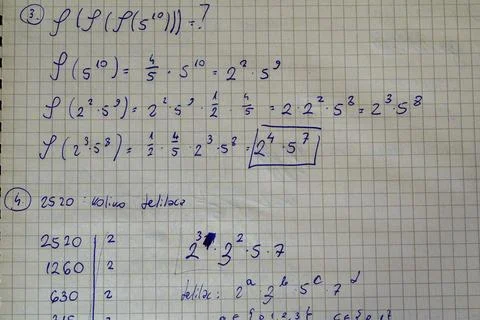 3. φ(φ(φ(5¹⁰))) = ?
φ(5¹⁰) = 4/5 · 5¹⁰ = 2² · 5⁹
φ(2² · 5⁹) = 2² · 5⁹ · 1/2 · 4/5 = 2 · 2² · 5⁸ = 2³ · 5⁸
φ(2³ · 5⁸) = 1/2 · 4/5 · 2³ · 5⁸ = 2⁴ · 5⁷
4. 2520 koliko delilaca
2520 | 2
2³ · 3² · 5 · 7
1260 | 2
630 | 2
delilac: 2ᵃ 3ᵇ · 5ᶜ · 7ᵈ
315